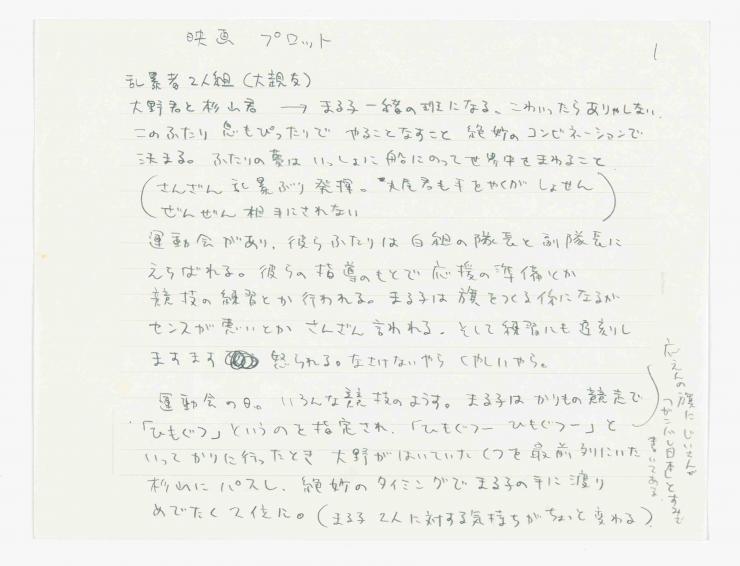 映画 プロット
1
乱暴者2人組(大親友)
大野君と杉山君 → まる子一緒の班になる、こわいったらありゃしない
このふたり 息もぴったりで やることなすこと 絶妙の コンビネーションで
決まる。ふたりの夢は いっしょに船にのって世界中をまわること
(さんざん 乱暴ぶり 発揮。丸尾君も手をやくが しょせん
ぜんぜん 相手にされない)
運動会があり、彼らふたりは 白組の隊長と副隊長に
えらばれる。彼らの指導のもとで 応援の準備とか
競技の練習とか行われる。まる子は旗をつくる係になるが
センスが悪いとか さんざん言われる、そして練習にも遅刻し
ますます 怒られる。なさけないやら くやしいやら。
運動会の日。いろんな競技のようす。まる子は かりもの競走で
「ひもぐつ」というのを指定され、「ひもぐつー ひもぐつー」と
いって かりに行ったとき 大野がはいていた くつを最前列にいた
杉山に パスし、絶妙のタイミングで まる子の手に渡り
めでたく 2位に。(まる子 2人に対する気持ちがちょっと変わる)
応えんの旗に じいさんが
「つかこバレ日本」とすみで
書いてある